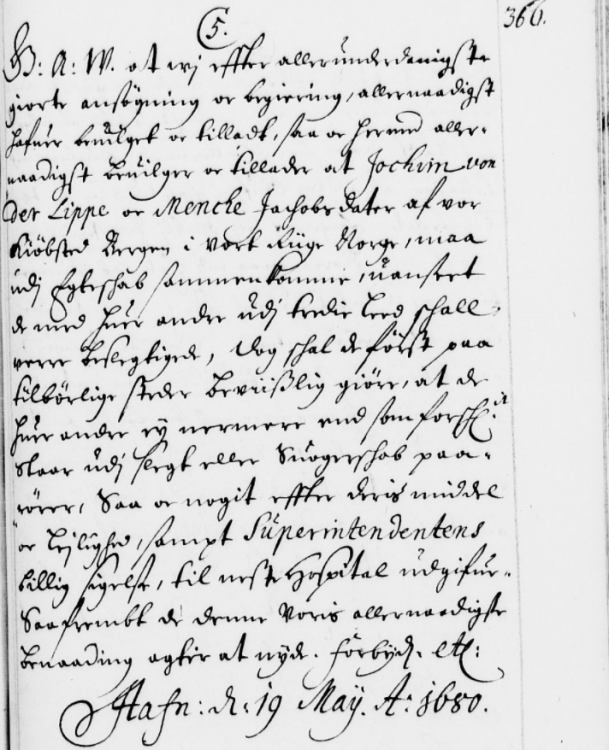 366.
(5.
G: A: W. at wj effter allerunderdanigste
giorte ansögning oc begiering, allernaadigst
hafuer beuilget oc tilladt, saa oc hermed aller-
naadigst beuilger oc tillader at Jochim von
der Lippe oc Menche Jachobsdater af vor
Kiöbsted Bergen i vort Rige Norge, maa
udj Egteschab sammenkomme, uanseet
de med huer andre udj tredie leed schall
verre beslegtigede, dog schal de först paa
tilbörlige steder beviißlig giöre, at de
huer andre ej nermere end som forsch:t
staar udj slegt eller Suogerschab paa-
rörer, Saa oc nogit effter deris middel
oc lejlighed, sampt Superintendentens
billig sigelse, til neste Hospital udgifue.
Saafrembt de denne Voris allernaadigste
benaading agter at nyde. Forbyd: etc:
Hafn: d: 19 May. A: 1680.